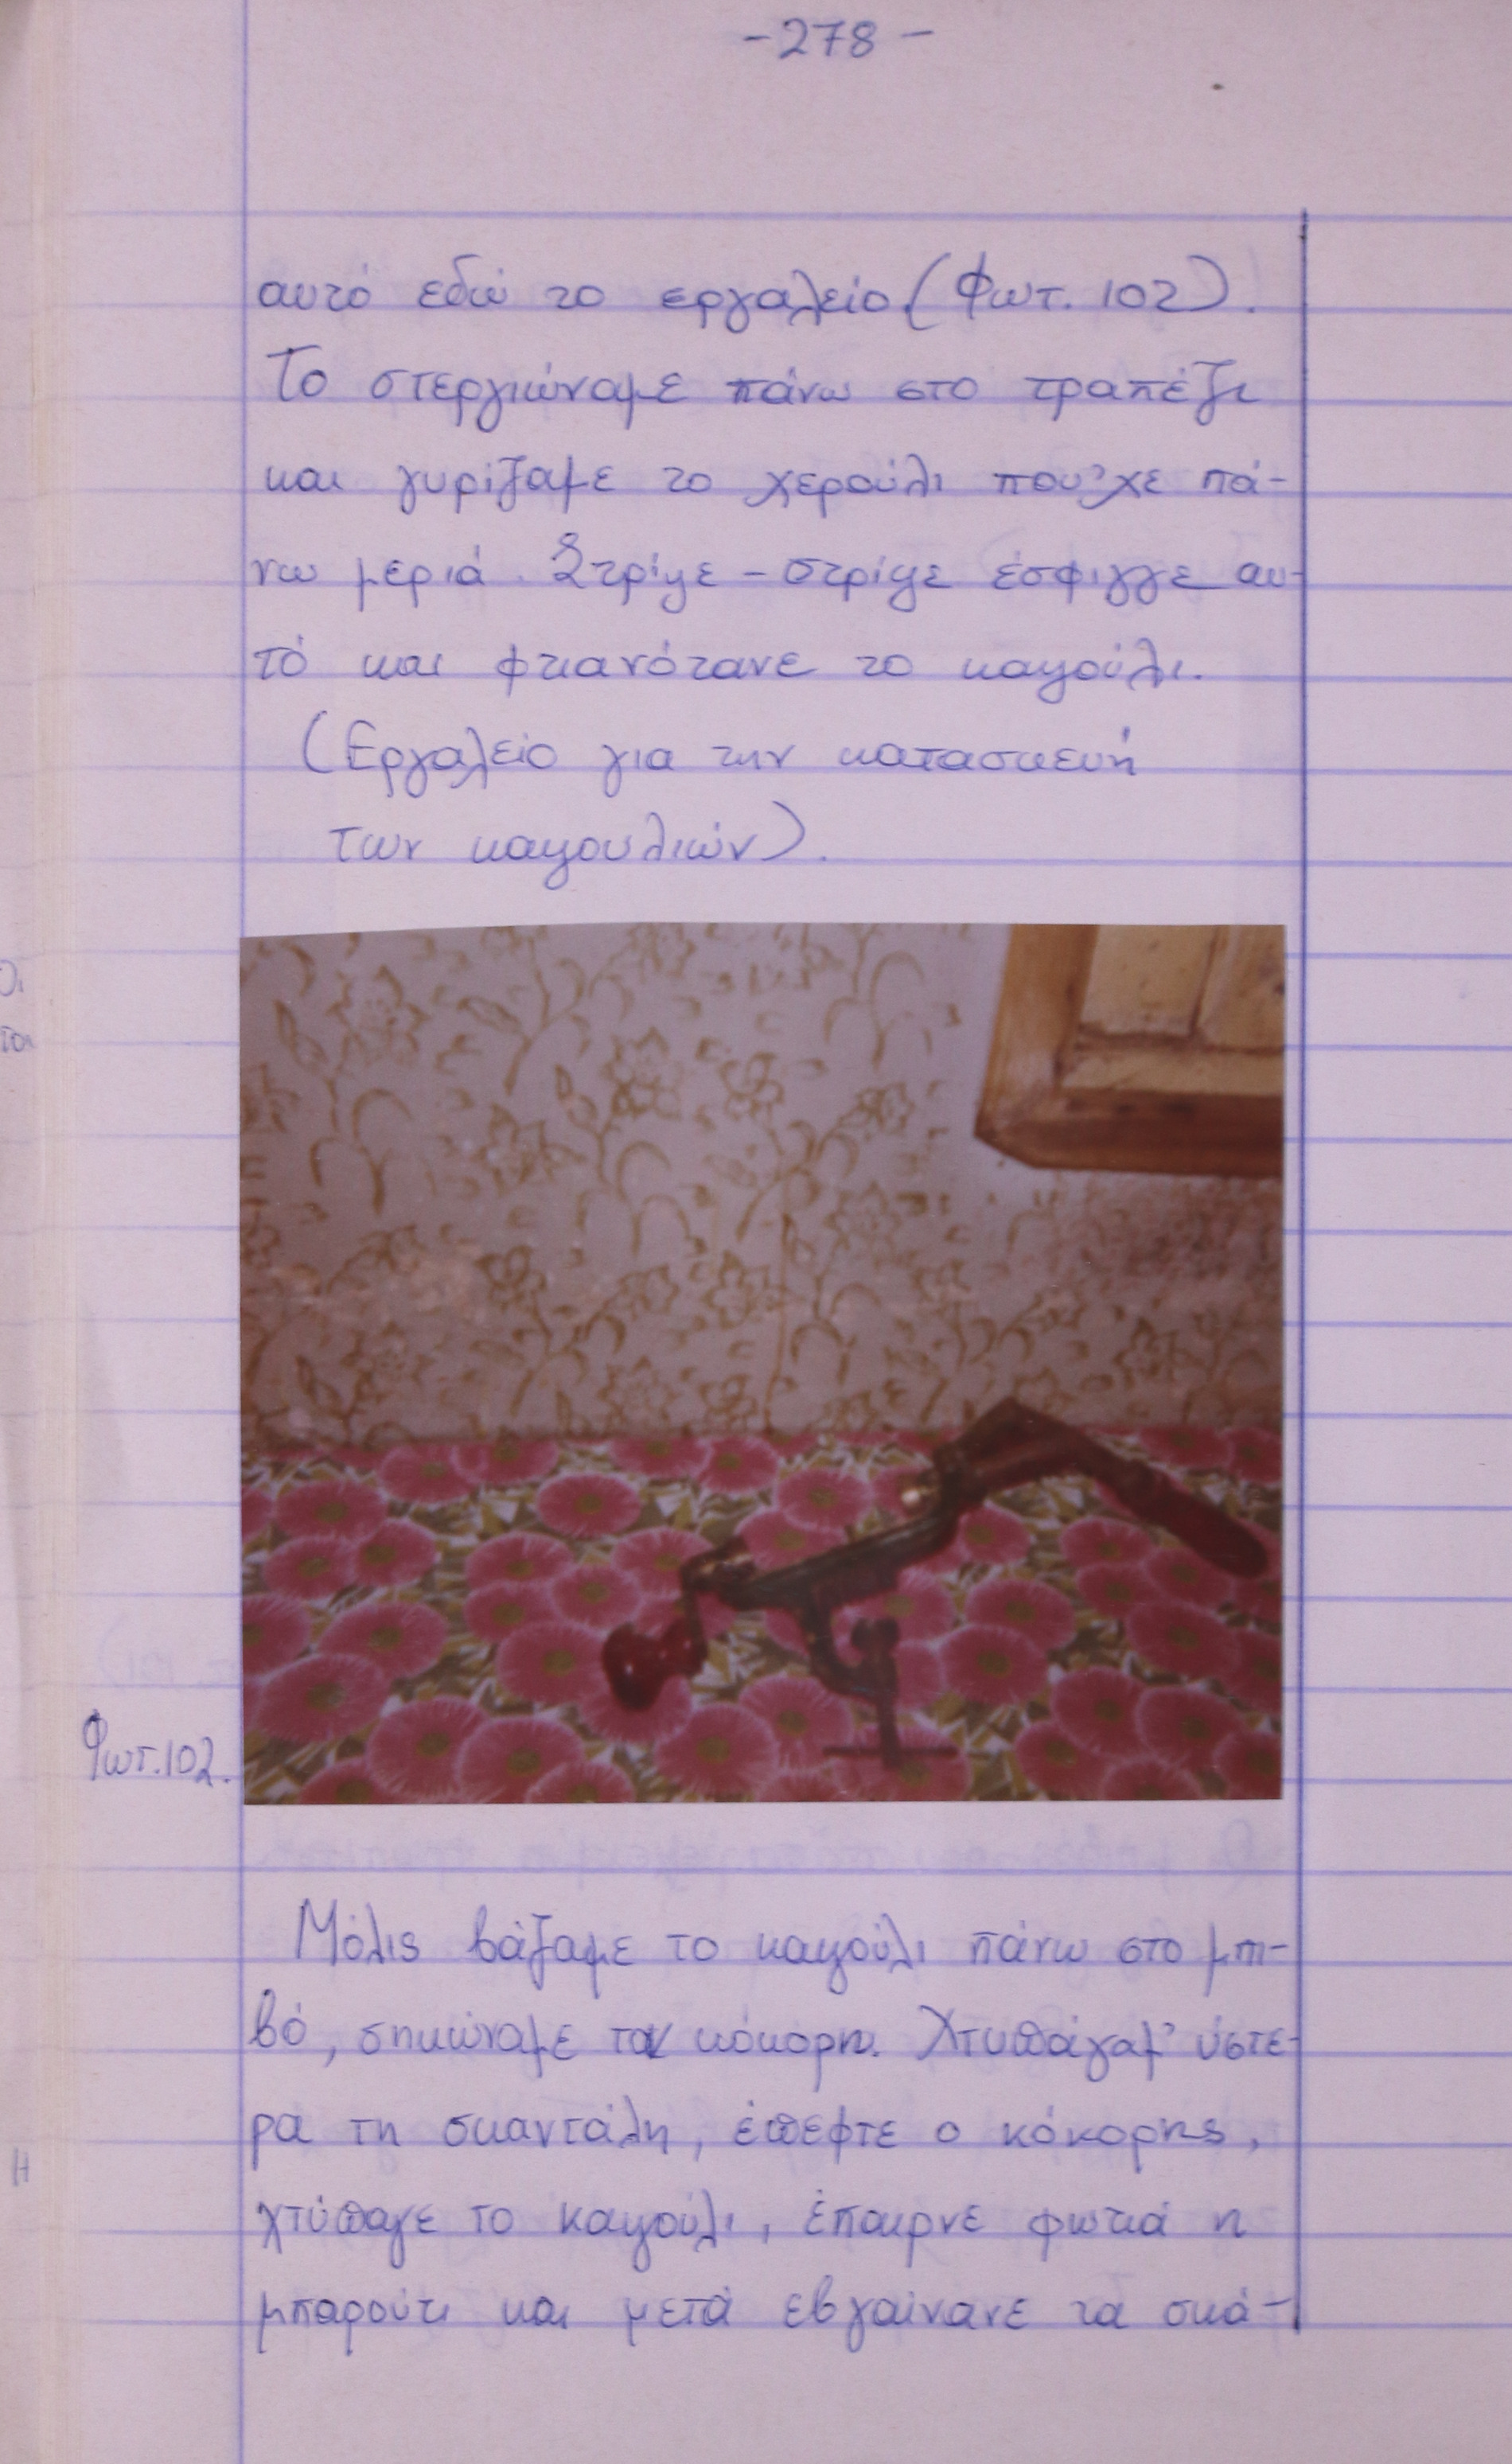 -278-
αυτό εδώ το εργαλείο (Φωτ. 102).
Το στεργιώναμε πάνω στο τραπέζι
και γυρίζαμε το χερούλι που'χε πά-
νω μεριά. Στρίψε - στρίψε έσφιγγε αυ-
τό και φτιανότανε το καψούλι.
(Εργαλείο για την κατασκευή
των καψουλιών).
Φωτ. 102.
Μόλις βάζαμε το καψούλι πάνω στο μπι-
βό, σηκώναμε τον κόκορη. Χτυπάγαμ' ύστε-
ρα τη σκαντάλη, έπεφτε ο κόκορης,
χτύπαγε το καψούλι, έπαιρνε φωτιά η
μπαρούτι και μετά εβγαίνανε τα σκά-